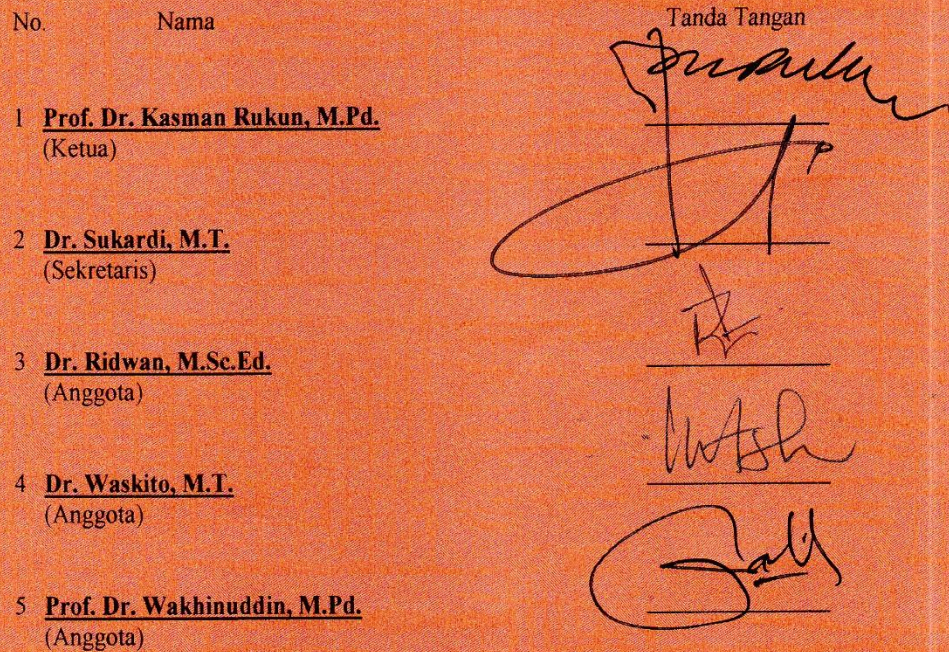 No. Nama Tanda Tangan
1 Prof. Dr. Kasman Rukun, M.Pd.
(Ketua)
2 Dr. Sukardi, M.T.
(Sekretaris)
3 Dr. Ridwan, M.Sc.Ed.
(Anggota)
4 Dr. Waskito, M.T.
(Anggota)
5 Prof. Dr. Wakhinuddin, M.Pd.
(Anggota)